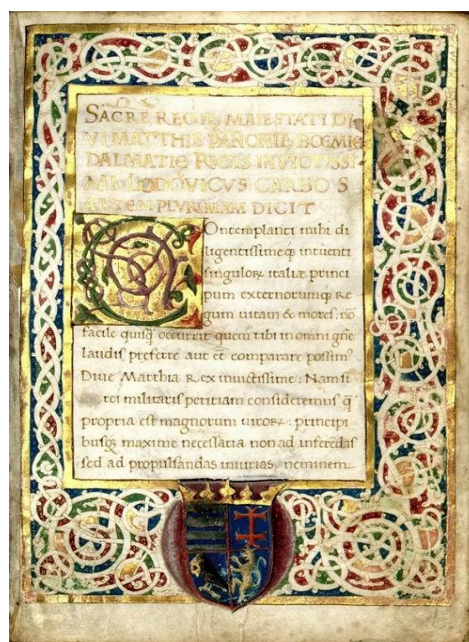 SACRE REGIE MAIESTATI DI
VI MATTHIE PANONIE BOEMIE
DALMATIE REGIS INVICTISSI
MI LODOVICVS CARBO S
ALVTEM PLVRIMAM DICIT
Contemplanti mihi di
ligentissimeq; intuenti
singulorꝝ italiæ princi
pum externorumq; Re
gum uitam & mores. nō
facile quisq̄ occurrit quem tibi in omni gñe
laudis preferre aut et comparare possim?
Diue Matthia Rex inuictissime: Nam si
rei militaris peritiam consideremus q̄
propria est magnorum uirorꝝ: principi
busq; maxime necessaria non ad inferēdas
sed ad propulsandas iniurias, neminem